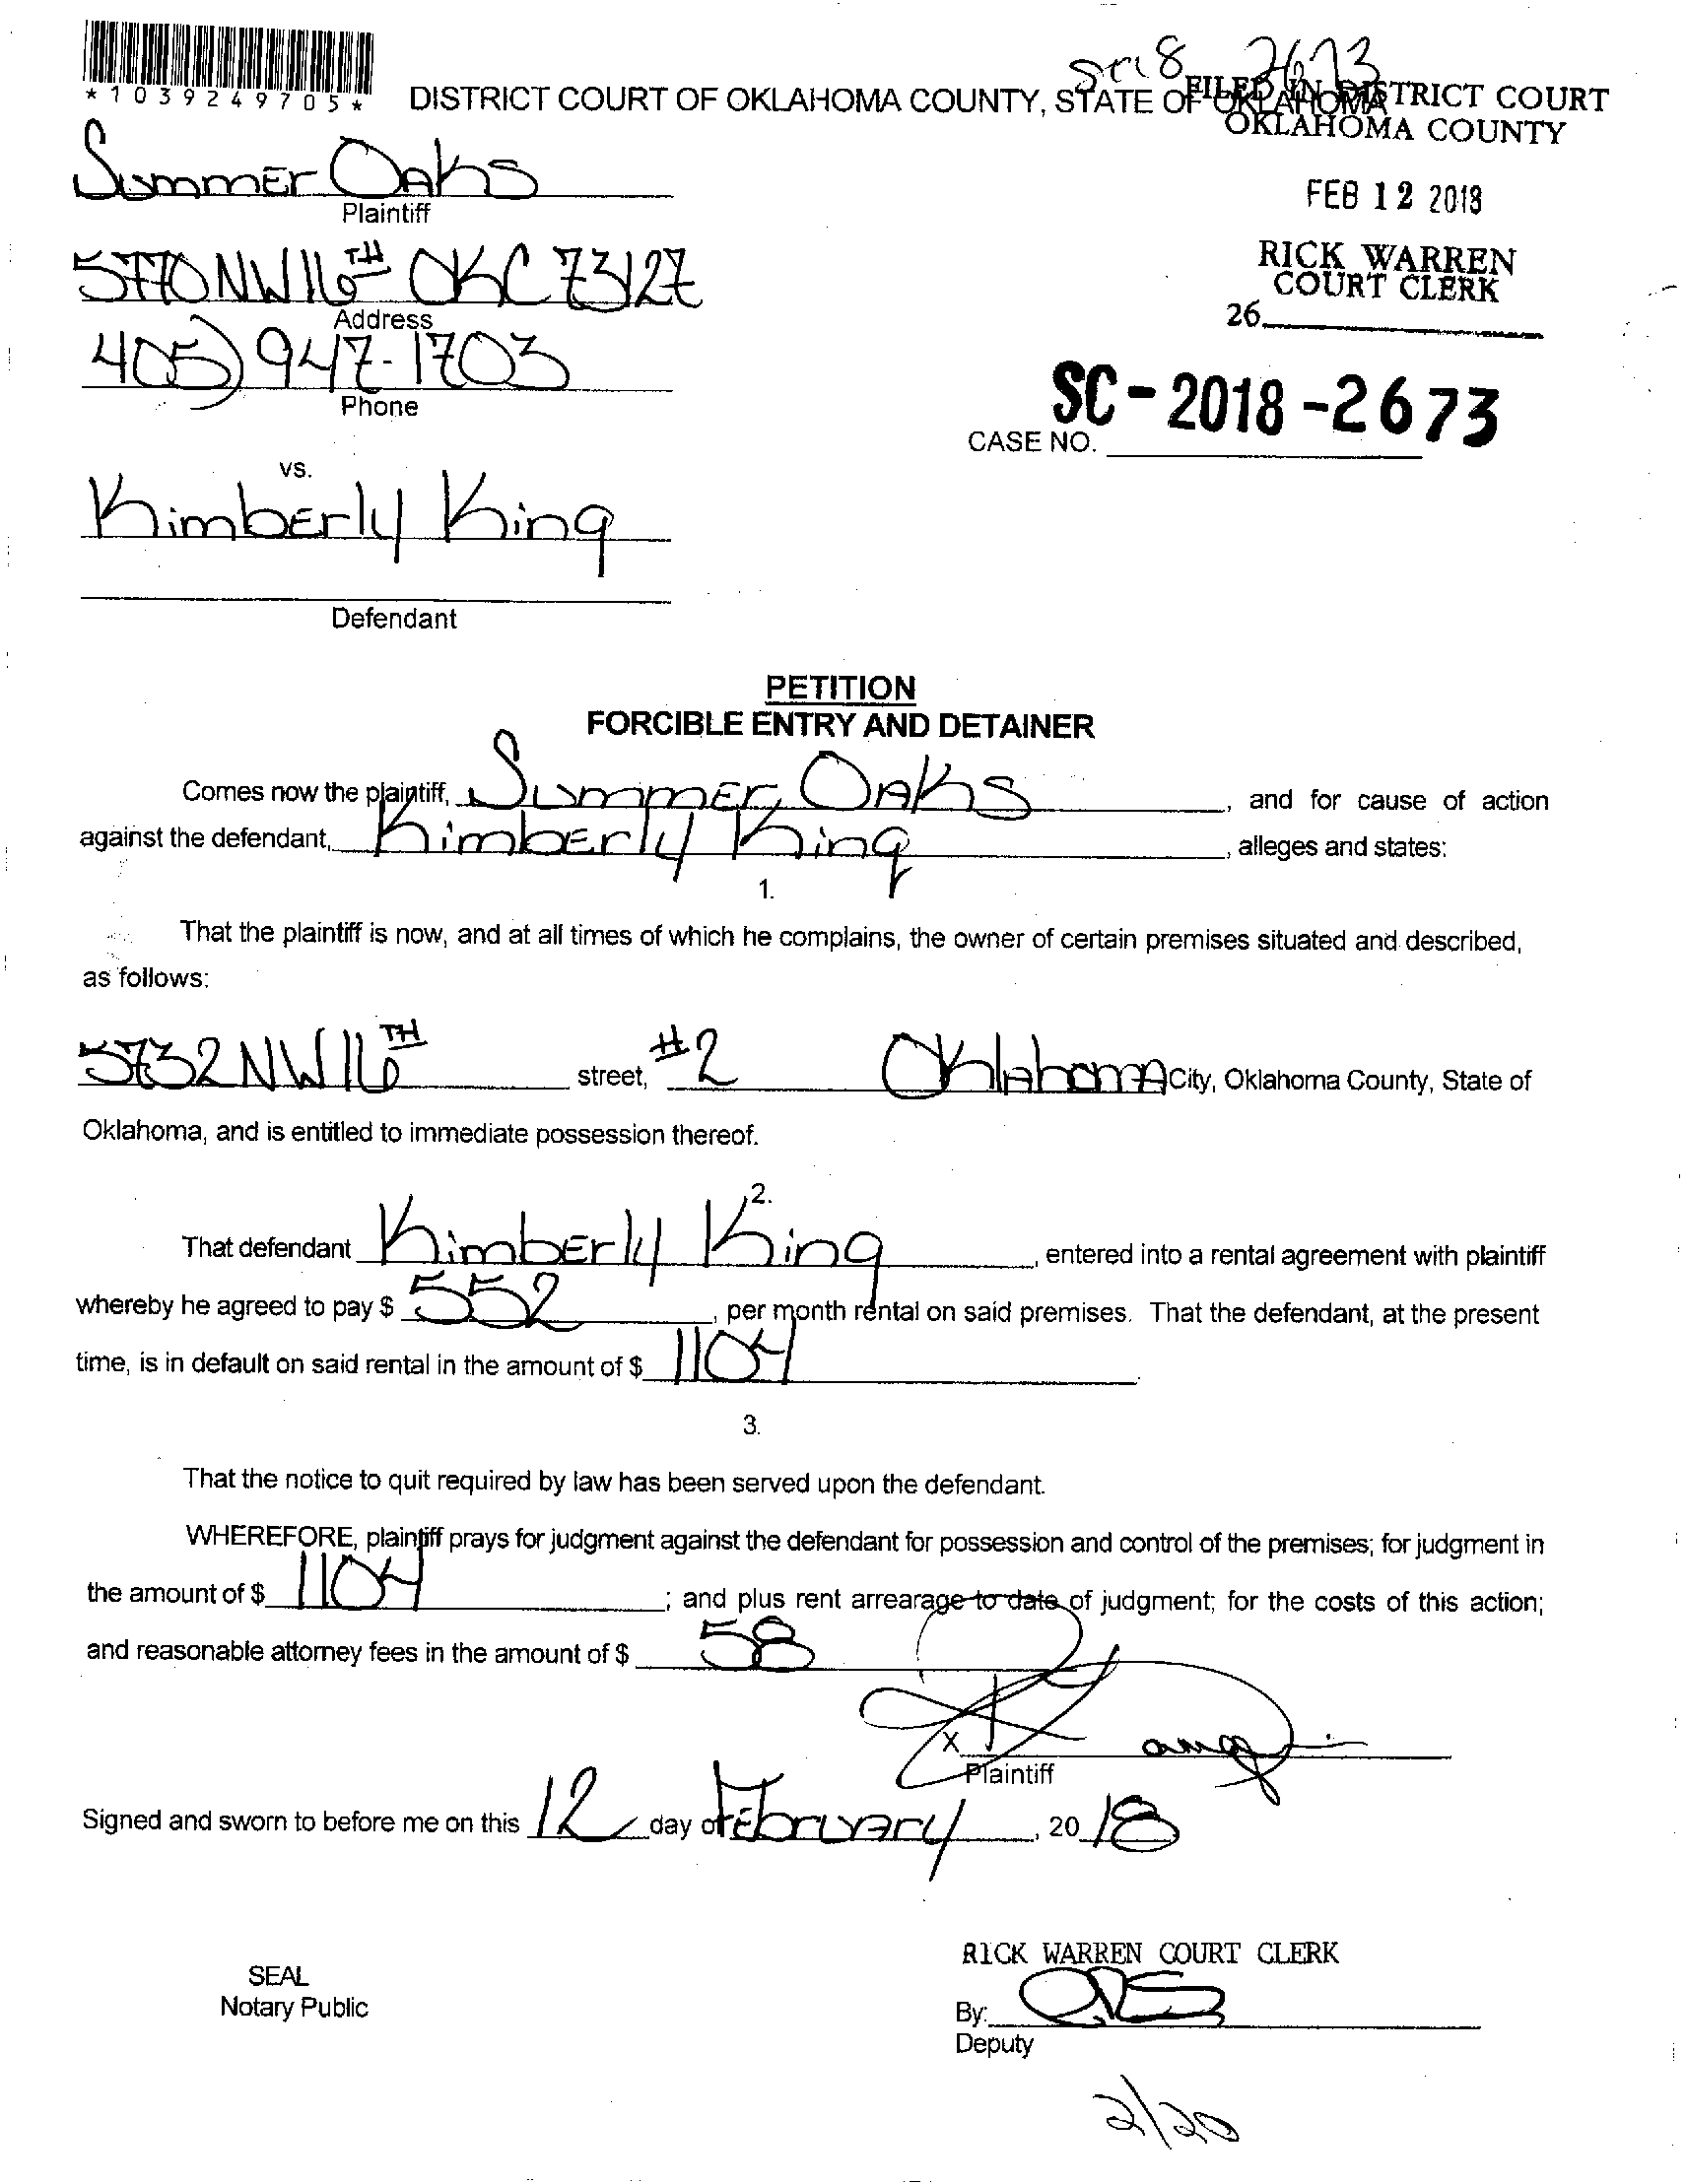 SC18 2673
*1039249705*
DISTRICT COURT OF OKLAHOMA COUNTY, STATE OF OKLAHOMA
FILED IN DISTRICT COURT
OKLAHOMA COUNTY
FEB 12 2018
RICK WARREN
COURT CLERK
26
Summer Oaks
Plaintiff
5770 NW 16TH OKC 73127
Address
405) 947-1703
Phone
SC-2018-2673
CASE NO.
vs.
Kimberly King
Defendant
PETITION
FORCIBLE ENTRY AND DETAINER
Comes now the plaintiff, Summer Oaks, and for cause of action
against the defendant, Kimberly King, alleges and states:
1.
That the plaintiff is now, and at all times of which he complains, the owner of certain premises situated and described,
as follows:
5732 NW 16TH street, #2 Oklahoma City, Oklahoma County, State of
Oklahoma, and is entitled to immediate possession thereof.
2.
That defendant Kimberly King, entered into a rental agreement with plaintiff
whereby he agreed to pay $ 552, per month rental on said premises. That the defendant, at the present
time, is in default on said rental in the amount of $ 1104
3.
That the notice to quit required by law has been served upon the defendant.
WHEREFORE, plaintiff prays for judgment against the defendant for possession and control of the premises; for judgment in
the amount of $ 1104; and plus rent arrearage to date of judgment; for the costs of this action;
and reasonable attorney fees in the amount of $ 58
X
Plaintiff
Signed and sworn to before me on this 12 day of February, 20 18
RICK WARREN COURT CLERK
SEAL
Notary Public
By:
Deputy
2/20